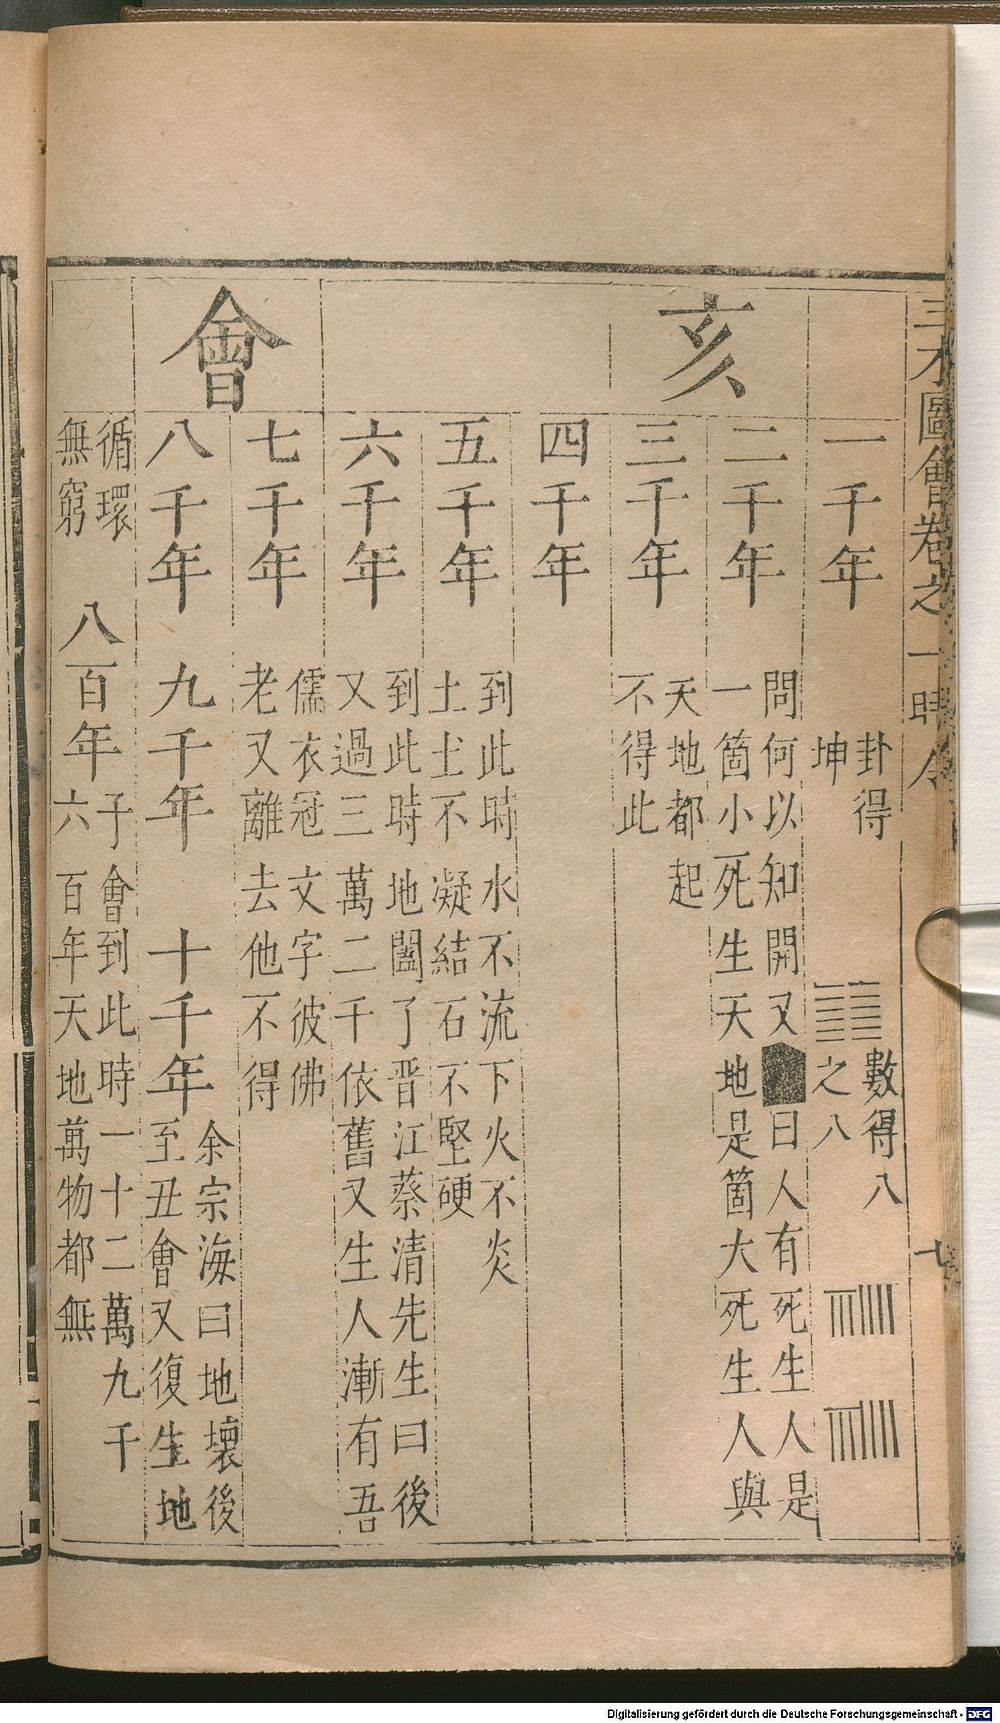 三才圖會卷之一時令
七
亥
會
一千年
卦得
坤
數得八
之八
二千年
問何以知開又曰人有死生人是
一箇小死生天地是箇大死生人與
三千年
天地都起
不得此
四千年
五千年
到此時水不流下火不炎
土土不凝結石不堅硬
六千年
到此時地闔了晋江蔡清先生曰後
又過三萬二千依舊又生人漸有吾
七千年
儒衣冠文字彼佛
老又離去他不得
八千年 九千年 十千年
余宗海曰地壞後
至丑會又復生地
循環
無窮
八百年
子會到此時一十二萬九千
六百年天地萬物都無
Digitalisierung gefördert durch die Deutsche Forschungsgemeinschaft - DFG